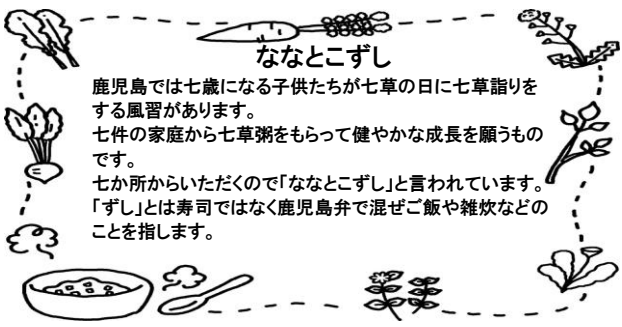 ななとこずし
鹿児島では七歳になる子供たちが七草の日に七草詣りを
する風習があります。
七件の家庭から七草粥をもらって健やかな成長を願うもの
です。
七か所からいただくので「ななとこずし」と言われています。
「ずし」とは寿司ではなく鹿児島弁で混ぜご飯や雑炊などの
ことを指します。